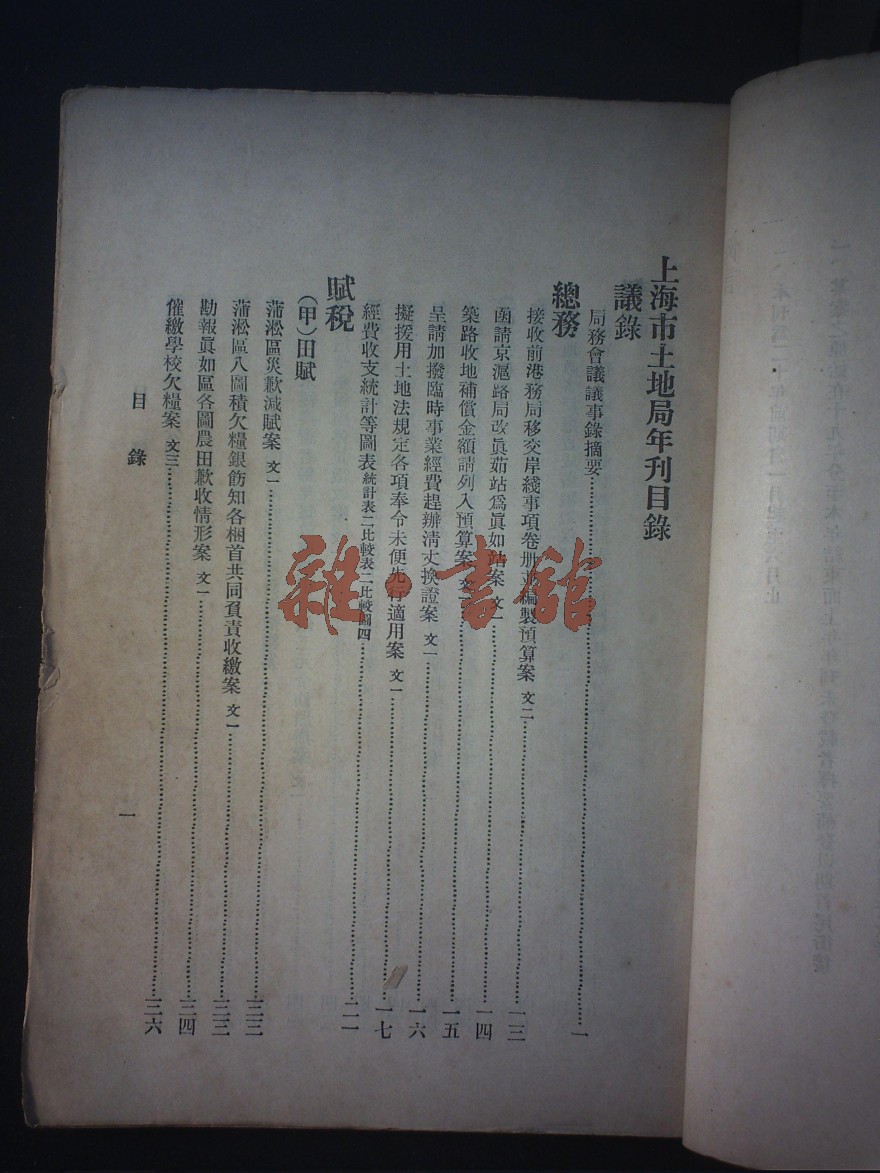 上海市土地局年刊目錄
議錄
局務會議議事錄摘要……一
總務
接收前港務局移交岸綫事項卷册並編製預算案 文二……一三
函請京滬路局改眞茹站爲眞如站案 文一……一四
築路收地補償金額請列入預算案 文一……一五
呈請加撥臨時事業經費趕辦淸丈換證案 文一……一六
擬援用土地法規定各項奉令未便先行適用案 文一……一七
經費收支統計等圖表 統計表二比較表二比較圖四……二一
賦稅
(甲)田賦
蒲淞區災歉減賦案 文一……三三
蒲淞區八圖積欠糧銀飭知各梱首共同負責收繳案 文一……三三
勘報眞如區各圖農田歉收情形案 文一……三四
催繳學校欠糧案 文三……三六
目 錄
一
雜·書舘